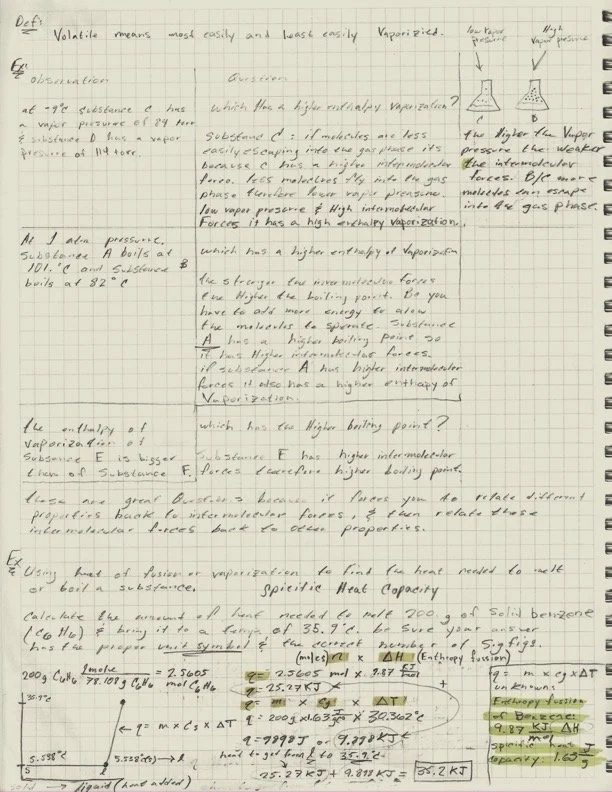 Def:
Volatile means most easily and least easily Vaporized.
low Vapor pressure
High Vapor pressure
Ex
Observation
Question
at -9°c substance C has
a vapor pressure of 89 torr
& substance D has a vapor
pressure of 114 torr.
which Has a higher enthalpy Vaporization?
Substand C : if molecules are less
easily escaping into the gas phase its
because C has a higher intermolecular
force. less molecules fly into the gas
phase therefore lower vapor pressure.
low vapor pressure & High intermolecular
Forces it has a high enthalpy vaporization.
C
B
the Higher the Vapor
pressure the weaker
the intermolcular
forces. B/C more
molecules can escape
into the gas phase.
At 1 atm pressure.
Substance A boils at
101.°C and Substance B
boils at 82°C
which has a higher enthalpy of Vaporization
the stronger the intermolecular forces
the Higher the boiling point. Be you
have to add more energy to allow
the molecules to sperate. Substance
A has a higher boiling point so
it has Higher intermolecular forces.
if substance A has higher intermolecular
forces it also has a higher enthalpy of
Vaporization.
the enthalpy of
vaporization of
Substance E is bigger
then of Substance F.
which has the Higher boiling point?
Substance E has higher intermolecular
forces therefore higher boiling point.
these are great Questions because it forces you to relate different
properties back to intermolecular forces, & then relate those
intermolecular forces back to other properties.
Ex
Using heat of fusion or vaporization to find the heat needed to melt
or boil a substance.
Spicific Heat Capacity
Calculate the amount of heat needed to melt 200.g of Solid benzene
(C6H6) & bring it to a temp of 35.9°c. be sure your answer
has the proper unit symbol & the correct number of Sig figs.
(moles) n x ΔH (Enthropy fussion)
200g C6H6 1mole / 78.108g C6H6 = 2.5605 mol C6H6
q = 2.5605 mol x 9.87 KJ/mol
q = 25.27 KJ
q = m x cg x ΔT
q = 200g x 1.63 J/g°c x 30.362°c
q = 9898J or 9.898 KJ
heat to get from l to 35.9°c
25.27 KJ + 9.898 KJ = 35.2 KJ
35.9°c
q = m x Cs x ΔT
5.538°C
5.538°(s) → l
S
l
solid → liquid (heat added)
q = m x cg x ΔT
unknowns
Enthropy fussion
of Benzene:
9.87 KJ/mol ΔH
Spicific heat
Capacity: 1.63 J/g